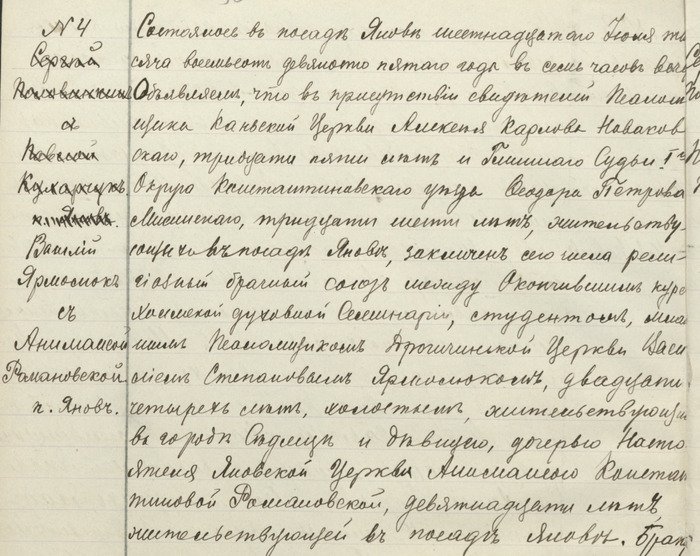 № 4
Сергій
Половинкинъ
а
Павской
Кухарчукъ
Василій
Ярмоснокъ
съ
Анимаисой
Романовской
п. Яновъ.
Состоялось въ посадѣ Яновѣ шестнадцатаго Іюля ты
сяча восемьсотъ девяносто пятаго года въ семь часовъ вече
Объявляемъ, что въ присутствіи свидѣтелей Псалом
щика Каньской Церкви Алексѣя Карлова Новаков
скаго, тридцати пяти лѣтъ и Гминнаго Судьи 1го
Округа Константиновскаго уѣзда Ѳеодора Петрова
тридцати шести лѣтъ, жительству
ющихъ въ посадѣ Яновѣ, заключенъ сего числа рели
гіозный брачный союзъ между Окончившимъ курс
Холмской духовной Семинаріи, студентомъ, млад
шимъ Псаломщикомъ Дрогичинской Церкви Васи
ліемъ Степановымъ Ярмоснокомъ, двадцати
четырехъ лѣтъ, холостымъ, жительствующи
въ городѣ Сѣдлецѣ и дѣвицею, дочерью Насто
ятеля Яновской Церкви Анимаисою Констан
тиновой Романовской, девятнадцати лѣтъ,
жительствующей въ посадѣ Яновѣ. Брак